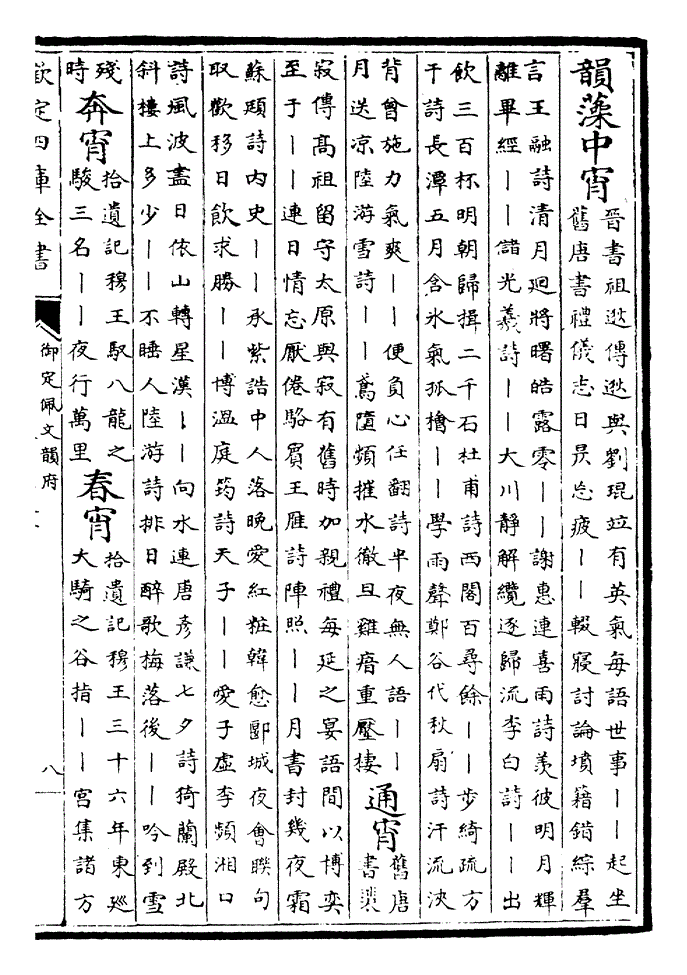 韻藻中宵晉書祖逖傳逖與劉琨竝有英氣每語世事丨丨起坐
舊唐書禮儀志日昃忘疲丨丨輟寢討論墳籍錯綜羣
言王融詩清月廻將曙皓露零丨丨謝惠連喜雨詩羨彼明月輝
離畢經丨丨儲光羲詩丨丨大川靜解纜逐歸流李白詩丨丨出
飲三百杯明朝歸揖二千石杜甫詩西閣百尋餘丨丨步綺疏方
干詩長潭五月含氷氣孤檜丨丨學雨聲鄭谷代秋扇詩汗流浹
背曾施力氣爽丨丨便負心任翻詩半夜無人語丨丨
月送凉陸游雪詩丨丨鳶墮頻摧水徹旦雞瘖重壓棲
通宵舊唐
書裴
寂傳高祖留守太原與寂有舊時加親禮每延之宴語間以博奕
至于丨丨連日情忘厭倦駱賓王雁詩陣照丨丨月書封幾夜霜
蘇頲詩内史丨丨承紫誥中人落晚愛紅粧韓愈郾城夜會聯句
取歡移日飲求勝丨丨博溫庭筠詩天子丨丨愛子虛李頻湘口
詩風波盡日依山轉星漢丨丨向水連唐彥謙七夕詩猗蘭殿北
斜樓上多少丨丨不睡人陸游詩排日醉歌梅落後丨丨吟到雪
殘
時
奔宵拾遺記穆王馭八龍之
駿三名丨丨夜行萬里
春宵拾遺記穆王三十六年東巡
大騎之谷指丨丨宮集諸方
欽定四庫全書
御定佩文韻府
八